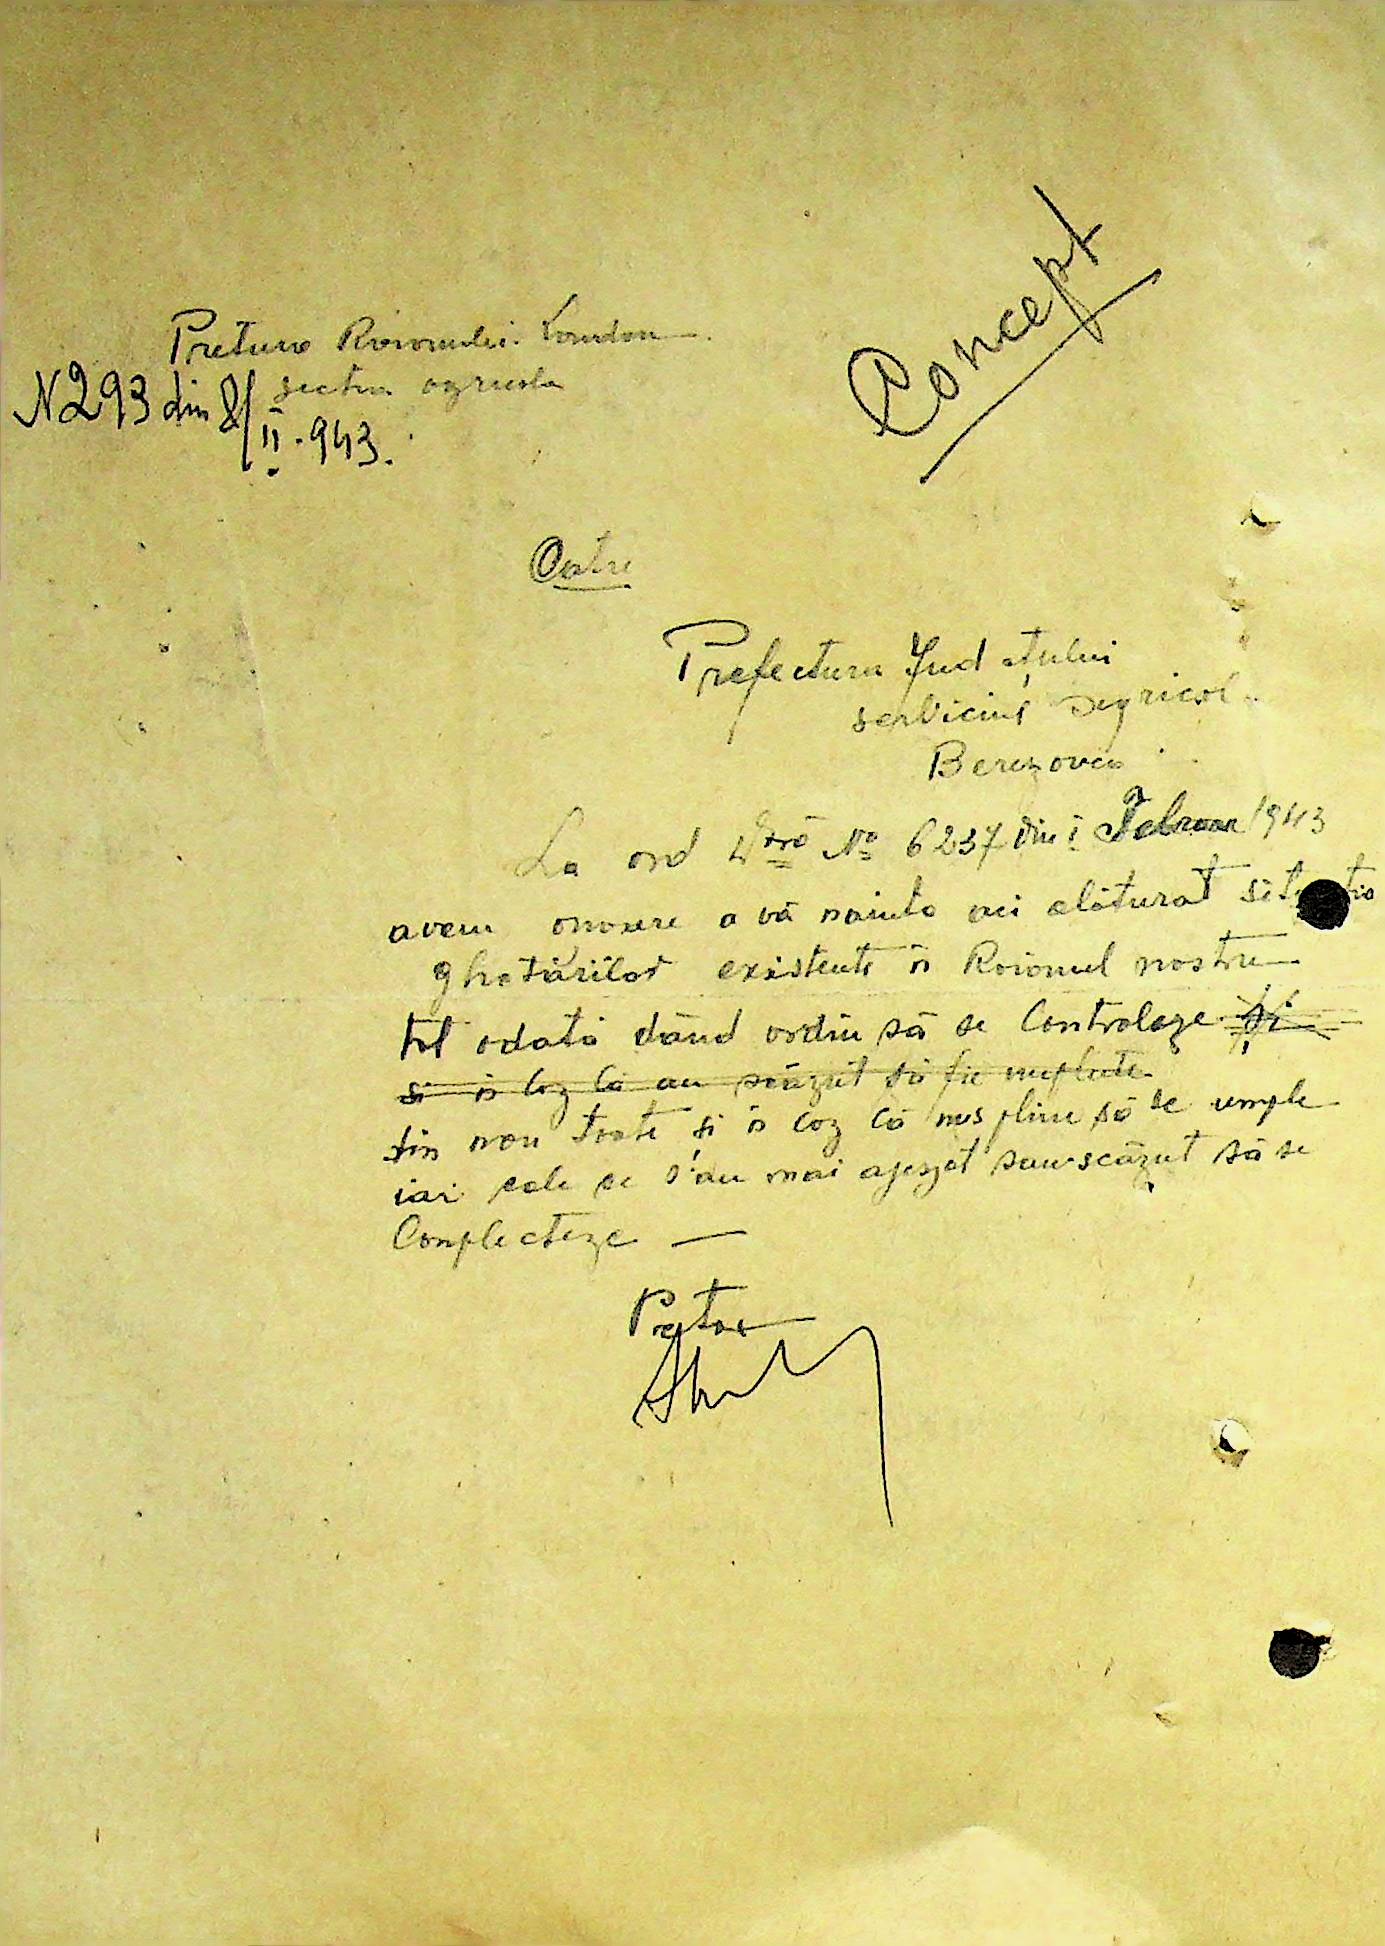 Concept
Pretura Raionului Landau
sectia agricola
N 293 din 8/II.943.
Catre
Prefectura Județului
serviciul Agricol
Berezovca
La ord Dvră No 6237 din 1 Februar 1943
avem onoare a vă nainta aci alăturat situatia
ghețăriilor existente în Raionul nostru
tot odată dând ordin să se Controleze și
si în caz că au scăzut să fie umplute
din nou toate și în caz că nus pline să se umple
iar cele ce s'au mai așezat sau scăzut să se
Complecteze —
Pretor